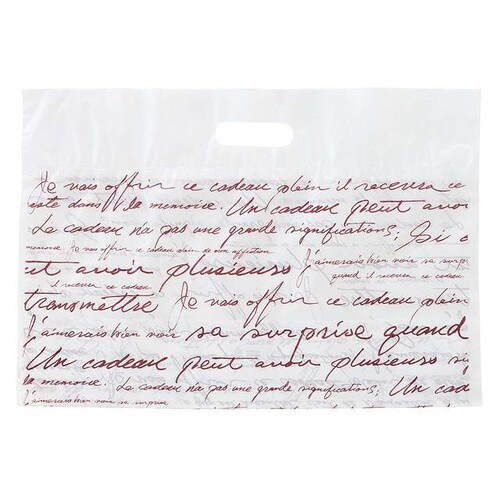 Je vais offrir ce cadeau plein il recevra ce
reste dans la memoire. Un cadeau peut avoi
La cadeau n'a pas une grande significations; Si c
memoire Je vais offrir ce cadeau plein de mon affection J'aimerais bien voir sa surpr
ut avoir plusieurs quand il recevra ce cadeau
il recevra ce cadeau
transmettre Je vais offrir ce cadeau plein
J'aimerais bien voir sa surprise quand
Un cadeau peut avoir plusieurs si
la memoire. La cadeau n'a pas une grande significations; Un cad
J'aimerais bien voir sa surprise